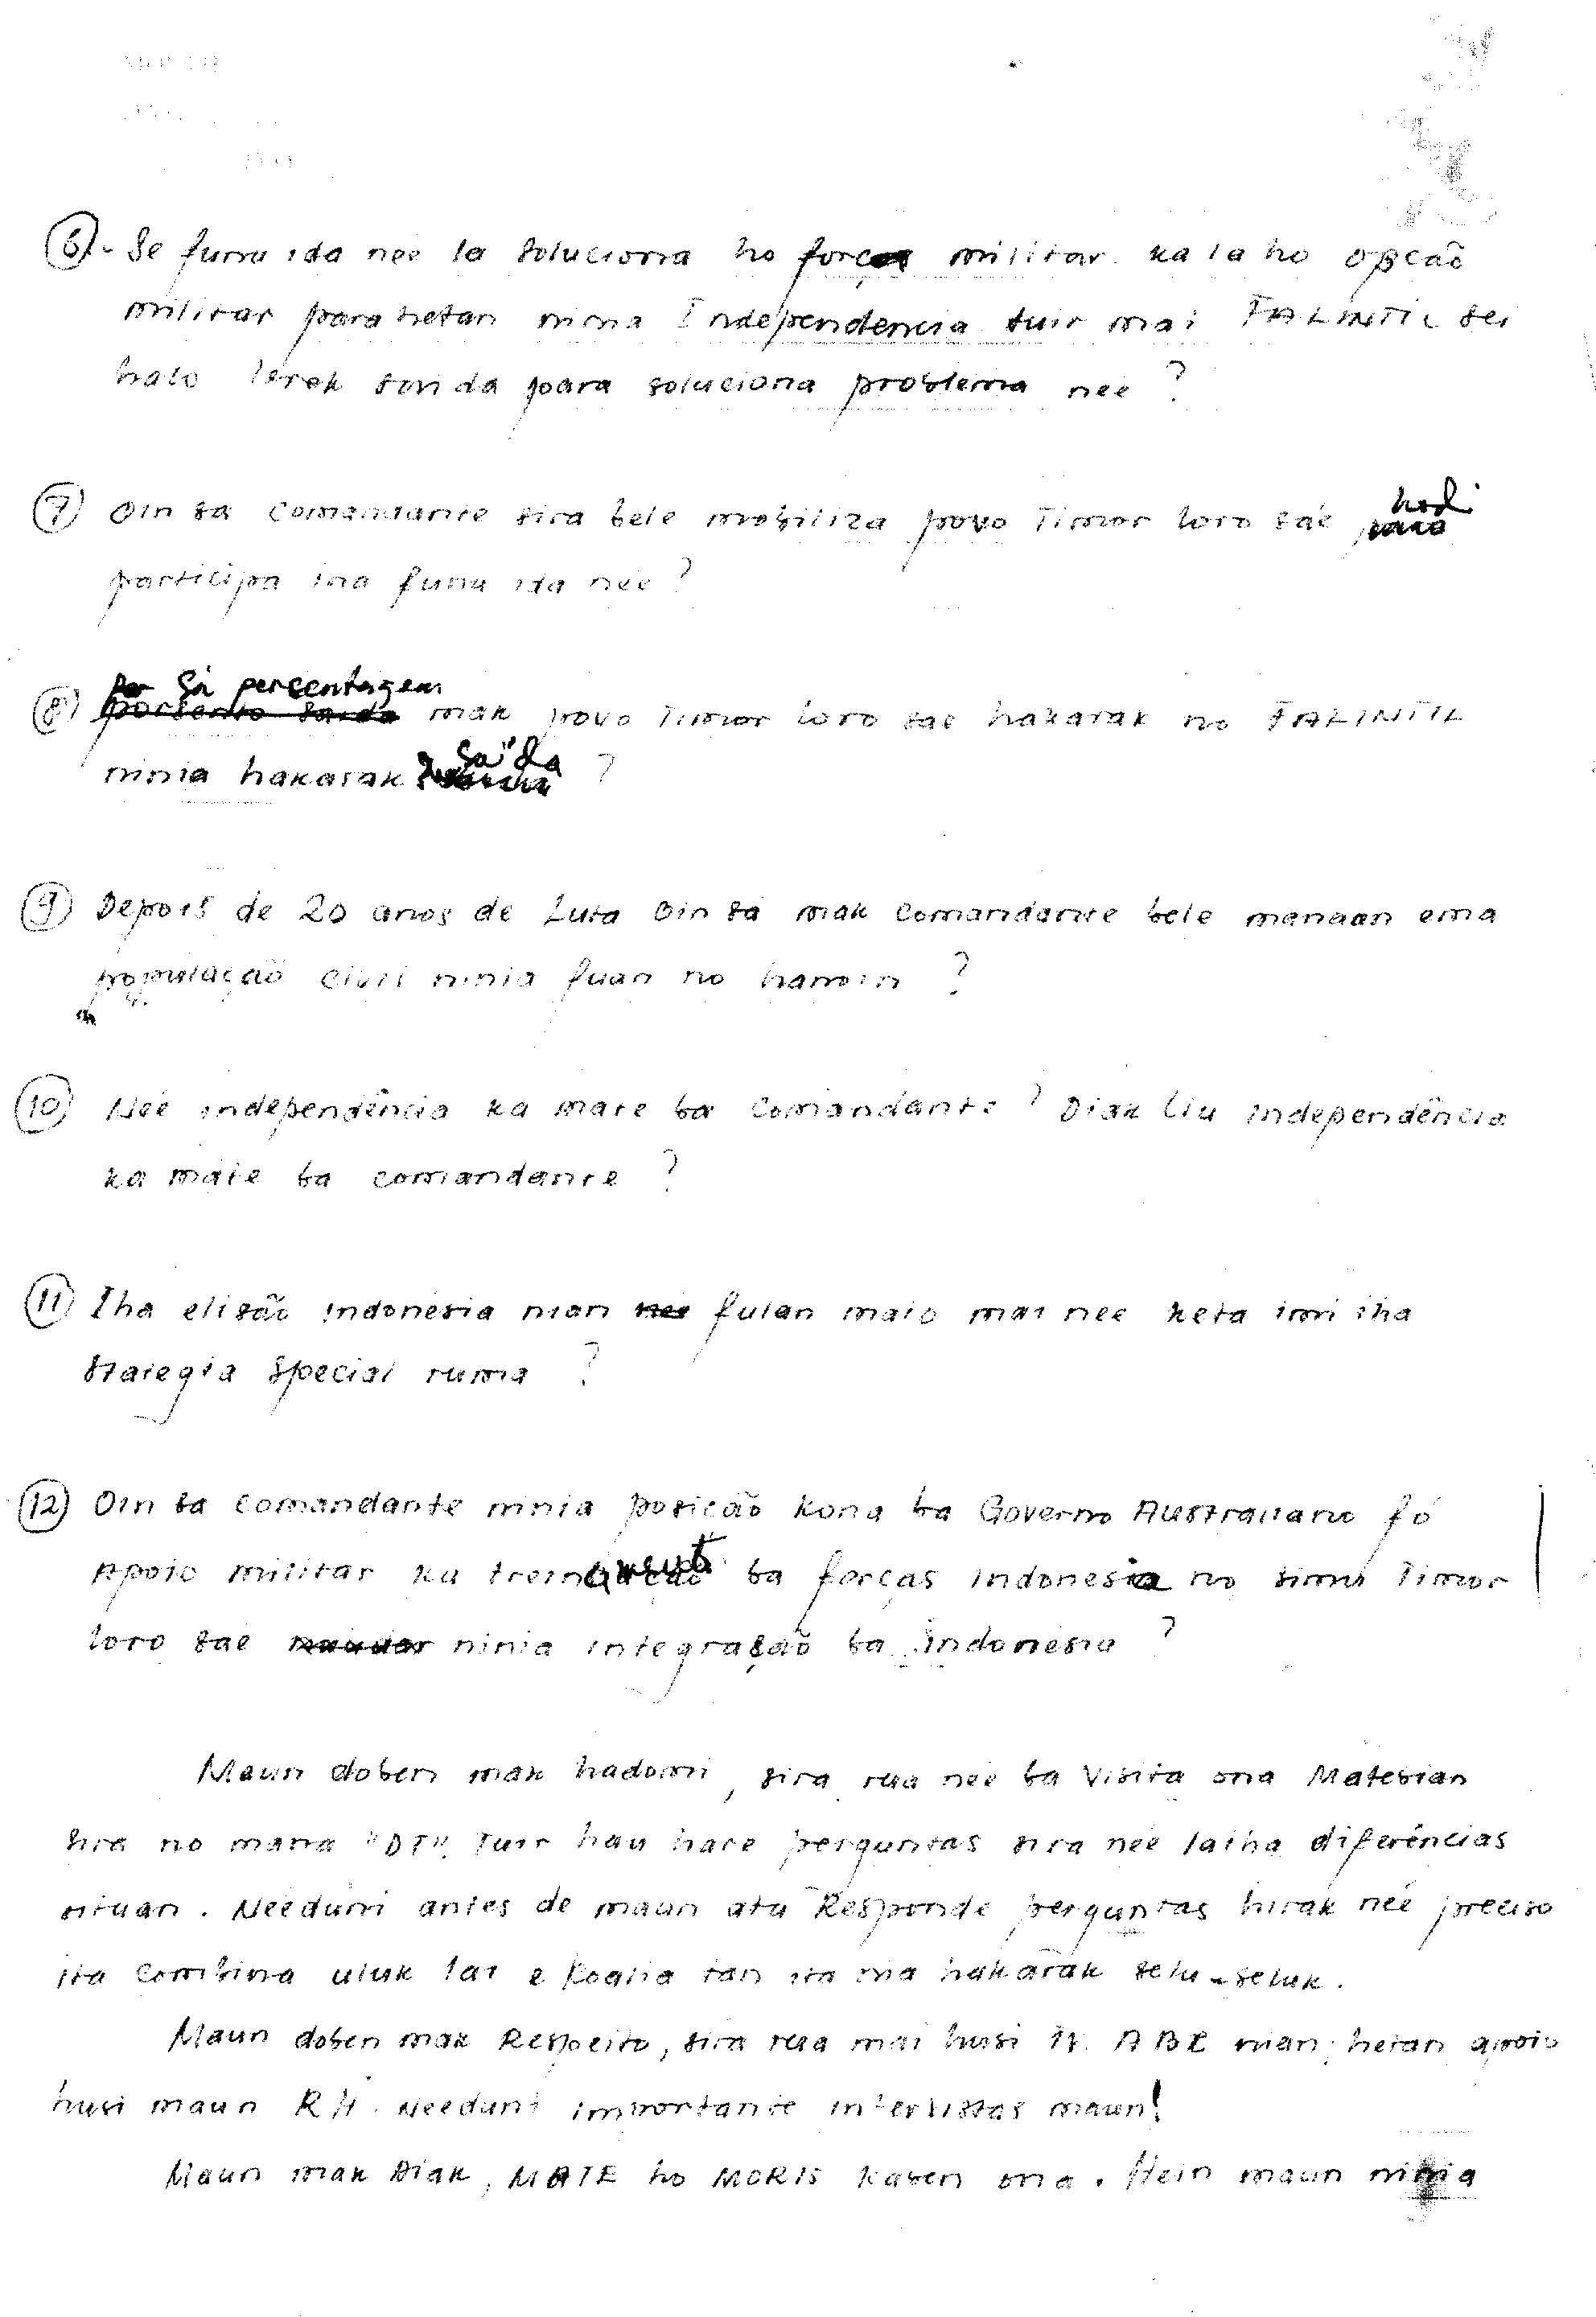 6 - Se funu ida nee la soluciona ho forças militar ka la ho opcaõ
militar para hetan ninia Independencia tuir mai FALINTIL sei
halo lerek son da para soluciona problema nee ?
7 Oin sa comandante sira bele mobiliza povo Timor loro sáe hodi
participa iha funu ida neé ?
8 Sá percentagem mak povo Timor loro sae hakarak no FALINTIL
ninia hakarak Sa'ida ?
9 Depois de 20 anos de Luta Oin sá mak comandante bele manaan ema
populaçaõ civil ninia fuan no hanoin ?
10 Neé independência ka mate ba comandante ? Diak liu independência
ka mate ba comandante ?
11 Iha elisão indonesia nian fulan maio mai nee keta imi iha
strategia special ruma ?
12 Oin sa comandante ninia posicão kona ba Governo Australiano fó
Apoio militar ka ba forças indonesia no simu Timor
loro sae ninia integração ba indonesia ?
Maun doben mak hadomi, sira rua neé ba visita ona Matebian
sira no mana "DT". Tuir hau hare perguntas sira neé laiha diferências
oituan. Needuni antes de maun atu Responde perguntas hirak neé preciso
ita combina uluk lai e koalia tan ita nia hakarak selu-seluk.
Maun doben mak Respeito, sira rua mai husi ABL nian, hetan apoio
husi maun RH. Needuni importante intervistas maun!
Maun mak Diak, MATE ho MORIS kaben ona. Hein maun ninia